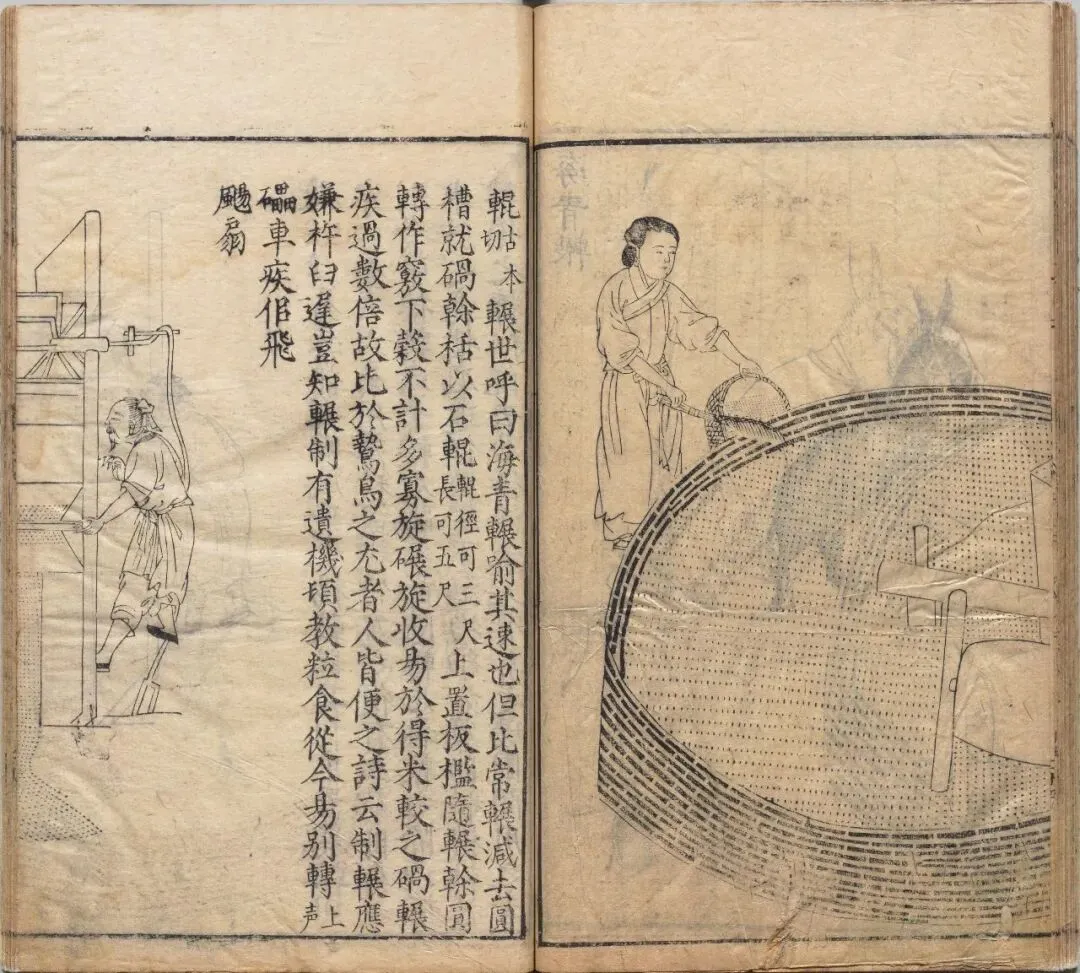 輥古本切輾世呼曰海青輾喻其速也但比常輾減去圓
槽就碢榦栝以石輥輥徑可三尺長可五尺上置板檻隨輾榦圓
轉作竅下糓不計多寡旋碾旋收易於得米較之碢輾
疾過數倍故比於鷙鳥之尤者人皆便之詩云制輾應
嫌杵臼遲豈知輾制有遺機頃教粒食從今易別轉上声
礧車疾佀飛
颺扇